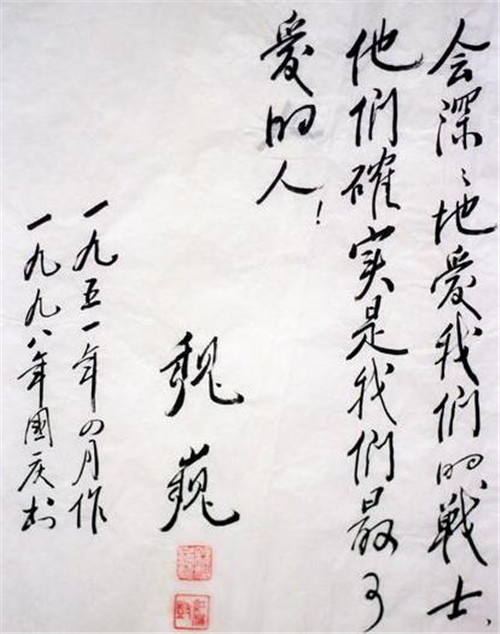 会深〻地爱我们的战士、
他们確实是我们最可
爱的人！
魏巍
一九五一年四月作
一九九八年國庆抄